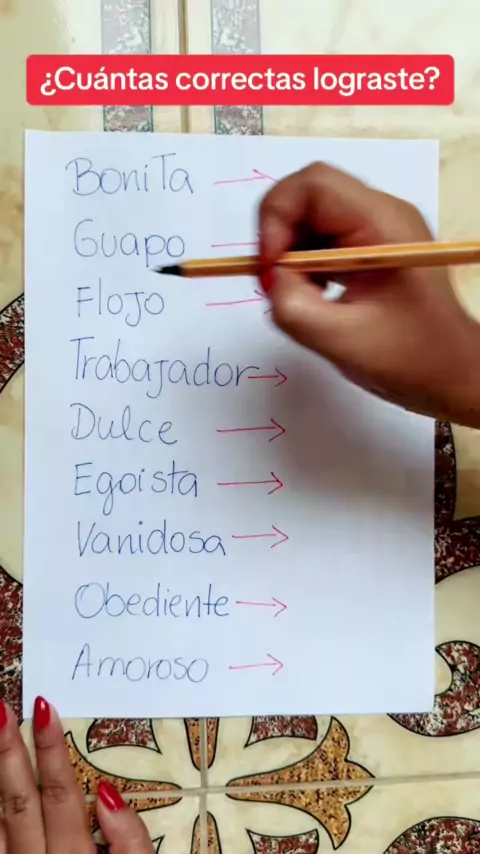 ¿Cuántas correctas lograste?
Bonita
Guapo
Flojo
Trabajador
Dulce
Egoista
Vanidosa
Obediente
Amoroso